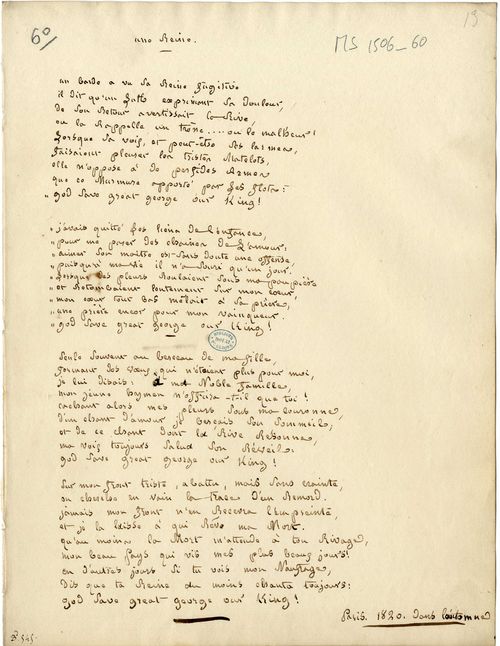 60
MS 1506-60
13
une Reine.
un barde a vu sa Reine fugitive
il dit qu'un luth exprimant sa douleur,
de son Retour avertissait la Rive,
ou la Rappelle un trône.... ou le malheur!
Lorsque sa voix, et peut-être ses larmes,
faisaient pleurer les tristes Matelots,
elle n'oppose à de perfides armes
que ce Murmure apporté par les flots:
" god save great george our King!
" j'avais quitté les liens de l'enfance,
" pour me parer des chaines de l'amour.
" aimer son maître est sans doute une offense
" puisqu'un mari il n'a souri qu'un jour.
" Lorsque des pleurs Roulaient sous ma paupière
" et Retombaient lentement sur mon cœur,
" mon cœur tout bas mêlait à sa prière,
" une prière encor pour mon vainqueur.
" god save great george our King!
Seule souvent au berceau de ma fille,
formant des vœux qui n'étaient plus pour moi,
je lui disais: ma Noble famille,
mon jeune hymen n'offrira-t-il que toi!
cachant alors mes pleurs sous ma couronne,
d'un chant d'amour je berçais son Sommeil,
et de ce chant dont la Rive Resonne,
ma voix toujours salua son Réveil.
god save great george our King!
Sur mon front triste, abattu, mais sans crainte,
on cherche en vain la trace d'un Remord.
jamais mon front n'en Recevra l'empreinte,
et je la laisse à qui Rêve ma Mort.
qu'au moins la Mort m'attende à ton Rivage,
mon beau pays qui vis mes plus beaux jours!
en d'autres jours si tu vois mon Naufrage,
Dis que ta Reine du moins chanta toujours:
god save great george our King!
Paris. 1820. dans l'automne